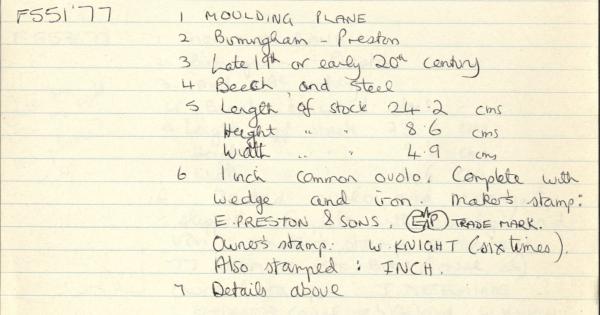 F551'77 1 MOULDING PLANE
2 Birmingham - Preston
3 Late 19th or early 20th century
4 Beech, and Steel
5 Length of stock 24.2 cms
Height " " 8.6 cms
Width " " 4.9 cms
6 1 inch common ovolo. Complete with
wedge and iron. Maker's stamp:
E. PRESTON & SONS. EP TRADE MARK.
Owner's stamp: W. KNIGHT (six times).
Also stamped: INCH.
7 Details above